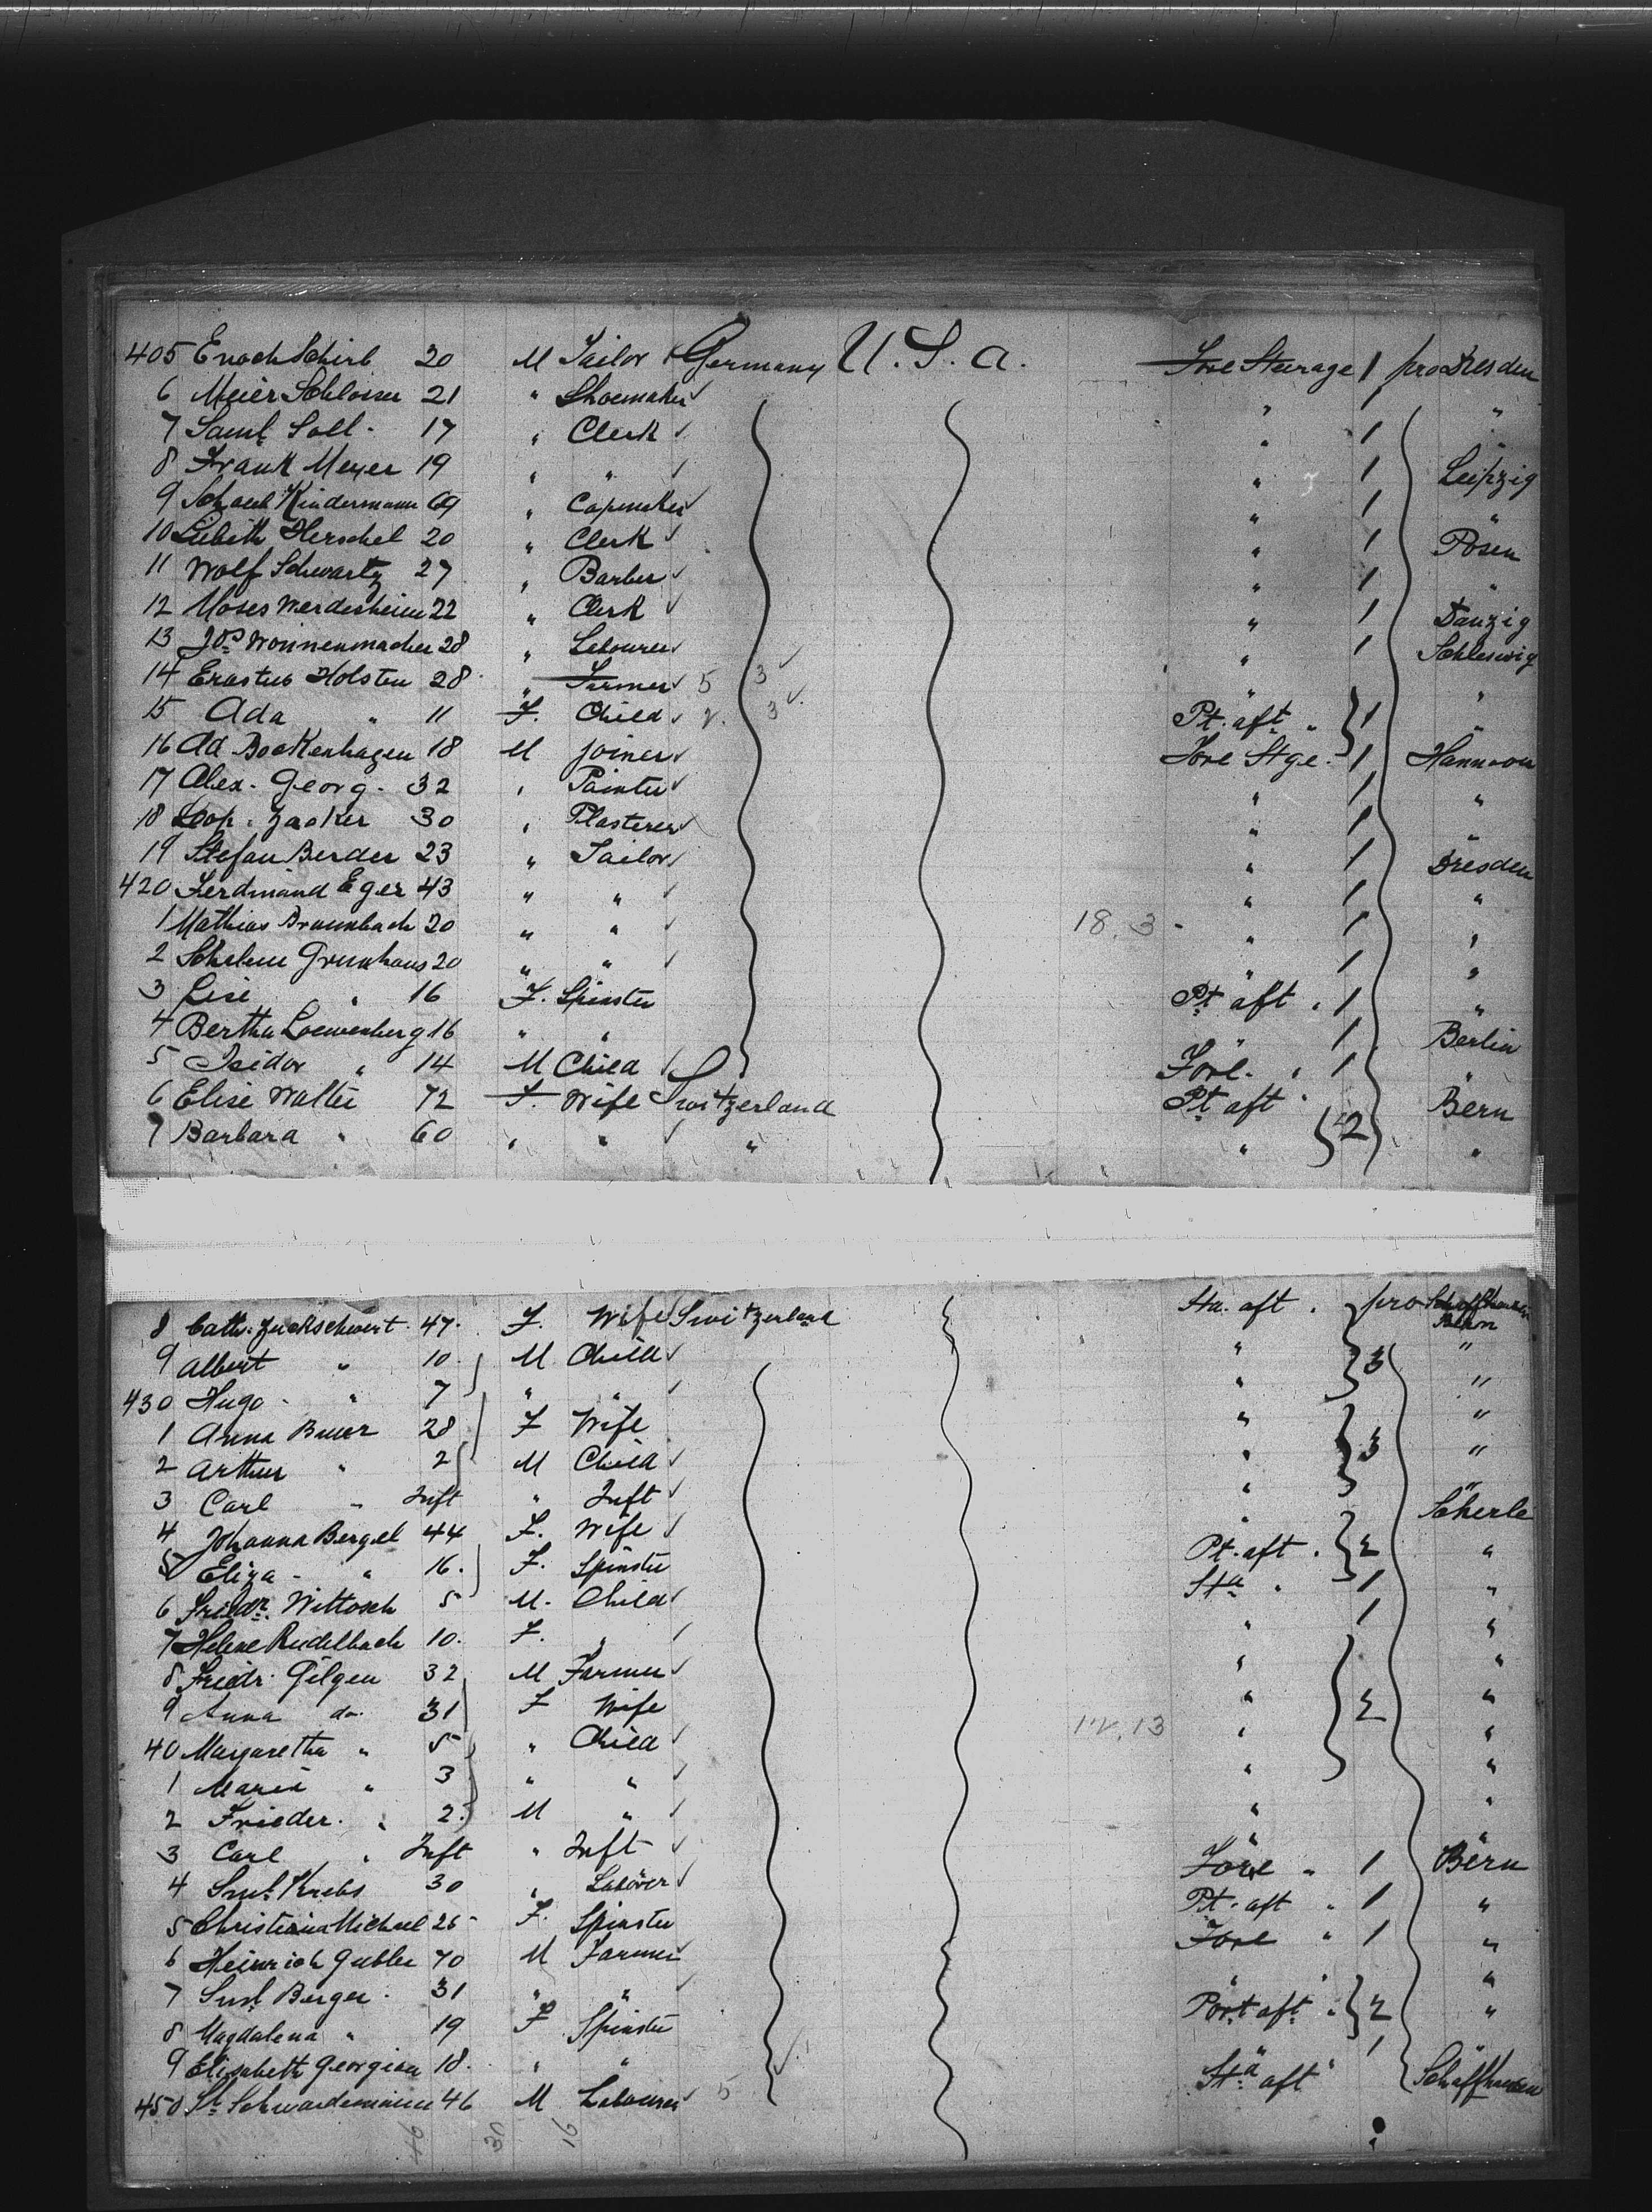 405 Enoch Schirl 20 M Tailor Germany U.S.A. Fore Steerage 1 pro Dresden
6 Meier Schlosser 21 " Shoemaker " 1 "
7 Saml Soll 17 " Clerk " 1
8 Frank Meyer 19 " " " 1 Leipzig
9 Kindermann 69 " Capmaker " 1 "
10 Herschel 20 " Clerk " 1 Posen
11 Wolf Schwartz 27 " Barber " 1 "
12 Moses Werdesheim 22 " Clerk " 1 Danzig
13 Jos Wonnenmacher 28 " Labourer " 1 Schleswig
14 Erastus Holsten 28 " Farmer 5 3 " "
15 Ada " 11 F. Child 2. 3 Pt. aft " 1 "
16 Ad Bockenhagen 18 M Joiner Fore Stge. 1 Hannover
17 Alex. Georg. 32 " Painter " 1 "
18 Leop. Zacker 30 " Plasterer " 1 "
19 Stefan Berder 23 " Tailor " 1 Dresden
420 Ferdinand Eger 43 " " " 1 "
1 Mathias Braunbach 20 " " 18.3 - " 1 "
2 Grunhaus 20 " " " 1 "
3 Lise " 16 F. Spinster Pt aft " 1 "
4 Bertha Loewenberg 16 " " " 1 Berlin
5 Isidor " 14 M Child Fore. " 1 "
6 Elise Walter 72 F. Wife Switzerland Pt aft " Bern
7 Barbara " 60 " " " " 2 "
8 Cath. Zuckschwert 47. F. Wife Switzerland Sta. aft . pro Schaffhausen
9 Albert " 10. M Child " 3 "
430 Hugo - " 7 " " " "
1 Anna Buser 28 F Wife " "
2 Arthur " 2 M Child " 3 "
3 Carl " Inft " Inft " "
4 Johanna Bergel 44 F. Wife " Scherle
5 Eliza - " 16. F. Spinster Pt. aft . 2 "
6 Friedr. Wittosch 5 M. Child Sta " 1 "
7 Helene Rudelbach 10. F. " " 1 "
8 Friedr. Gilgen 32 M Farmer " "
9 Anna do. 31 F Wife " 2 "
40 Margaretha " 5 " Child 12.13 " "
1 Maria " 3 " " " "
2 Frieder. " 2. M " " "
3 Carl " Inft " Inft " "
4 Saml Krebs 30 " Labourer Fore " 1 Bern
5 Christina Michael 26 F. Spinster Pt. aft " 1 "
6 Heinrich Gubler 70 M Farmer Fore " 1 "
7 Saml Berger. 31 " " " " "
8 Magdalena " 19 F Spinster Port aft " 2 "
9 Elisabeth 18. " " " " 1 "
450 46 M Labourer 5 Sta aft Schaffhausen
40 30 16